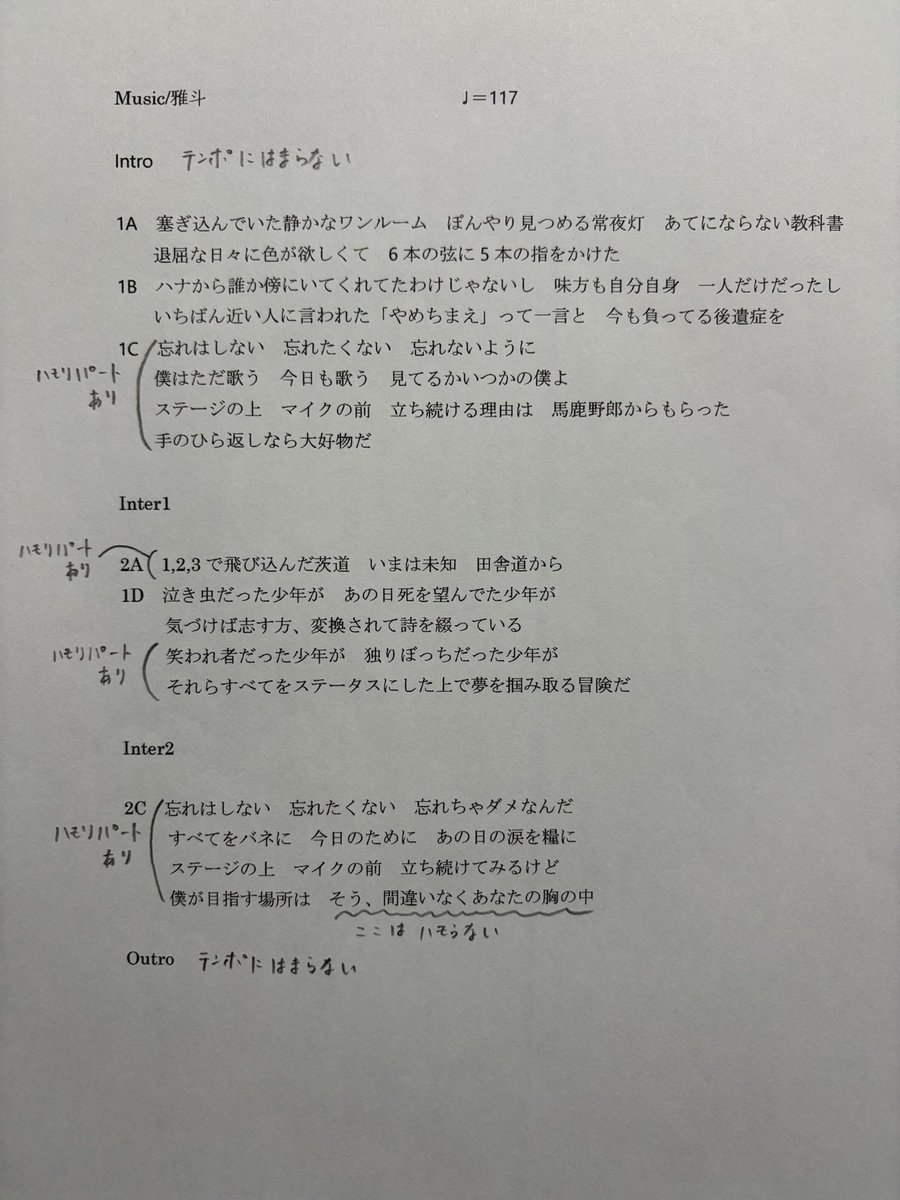 Music/雅斗　♩＝117
Intro　テンポにはまらない
1A　塞ぎ込んでいた静かなワンルーム　ぼんやり見つめる常夜灯　あてにならない教科書
退屈な日々に色が欲しくて　6本の弦に5本の指をかけた
1B　ハナから誰か傍にいてくれてたわけじゃないし　味方も自分自身　一人だけだったし
いちばん近い人に言われた「やめちまえ」って一言と　今も負ってる後遺症を
1C　忘れはしない　忘れたくない　忘れないように
ハモリパート　僕はただ歌う　今日も歌う　見てるかいつかの僕よ
あり　ステージの上　マイクの前　立ち続ける理由は　馬鹿野郎からもらった
手のひら返しなら大好物だ
Inter1
ハモリパート
あり　2A　1,2,3で飛び込んだ茨道　いまは未知　田舎道から
1D　泣き虫だった少年が　あの日死を望んでた少年が
気づけば志す方、変換されて詩を綴っている
ハモリパート　笑われ者だった少年が　独りぼっちだった少年が
あり　それらすべてをステータスにした上で夢を掴み取る冒険だ
Inter2
2C　忘れはしない　忘れたくない　忘れちゃダメなんだ
ハモリパート　すべてをバネに　今日のために　あの日の涙を糧に
あり　ステージの上　マイクの前　立ち続けてみるけど
僕が目指す場所は　そう、間違いなくあなたの胸の中
ここは ハモらない
Outro　テンポにはまらない